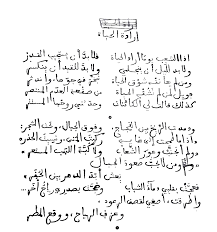 إرادة الحياة
إذا الشعب يوما أراد الحياة فلا بد أن يستجيب القدر
ولا بد لليل أن ينجلي ولا بد للقيد أن ينكسر
ومن لم يعانقه شوق الحياة تبخر في جوها واندثر
فويل لمن لم تشقه الحياة من صفعة العدم المنتصر
كذلك قالت لي الكائنات وحدثني روحها المستتر
ودمدمت الريح بين الفجاج وفوق الجبال وتحت الشجر
إذا ما طمحت إلى غاية ركبت المنى ونسيت الحذر
ولم أتجنب وعور الشعاب ولا كبة اللهب المستعر
ومن لا يحب صعود الجبال
يعش أبد الدهر بين الحفر
فعجت بقلبي دماء الشباب وضجت بصدري رياح أخر
وأطرقت، أصغي لقصف الرعود
وعزف الرياح، ووقع المطر